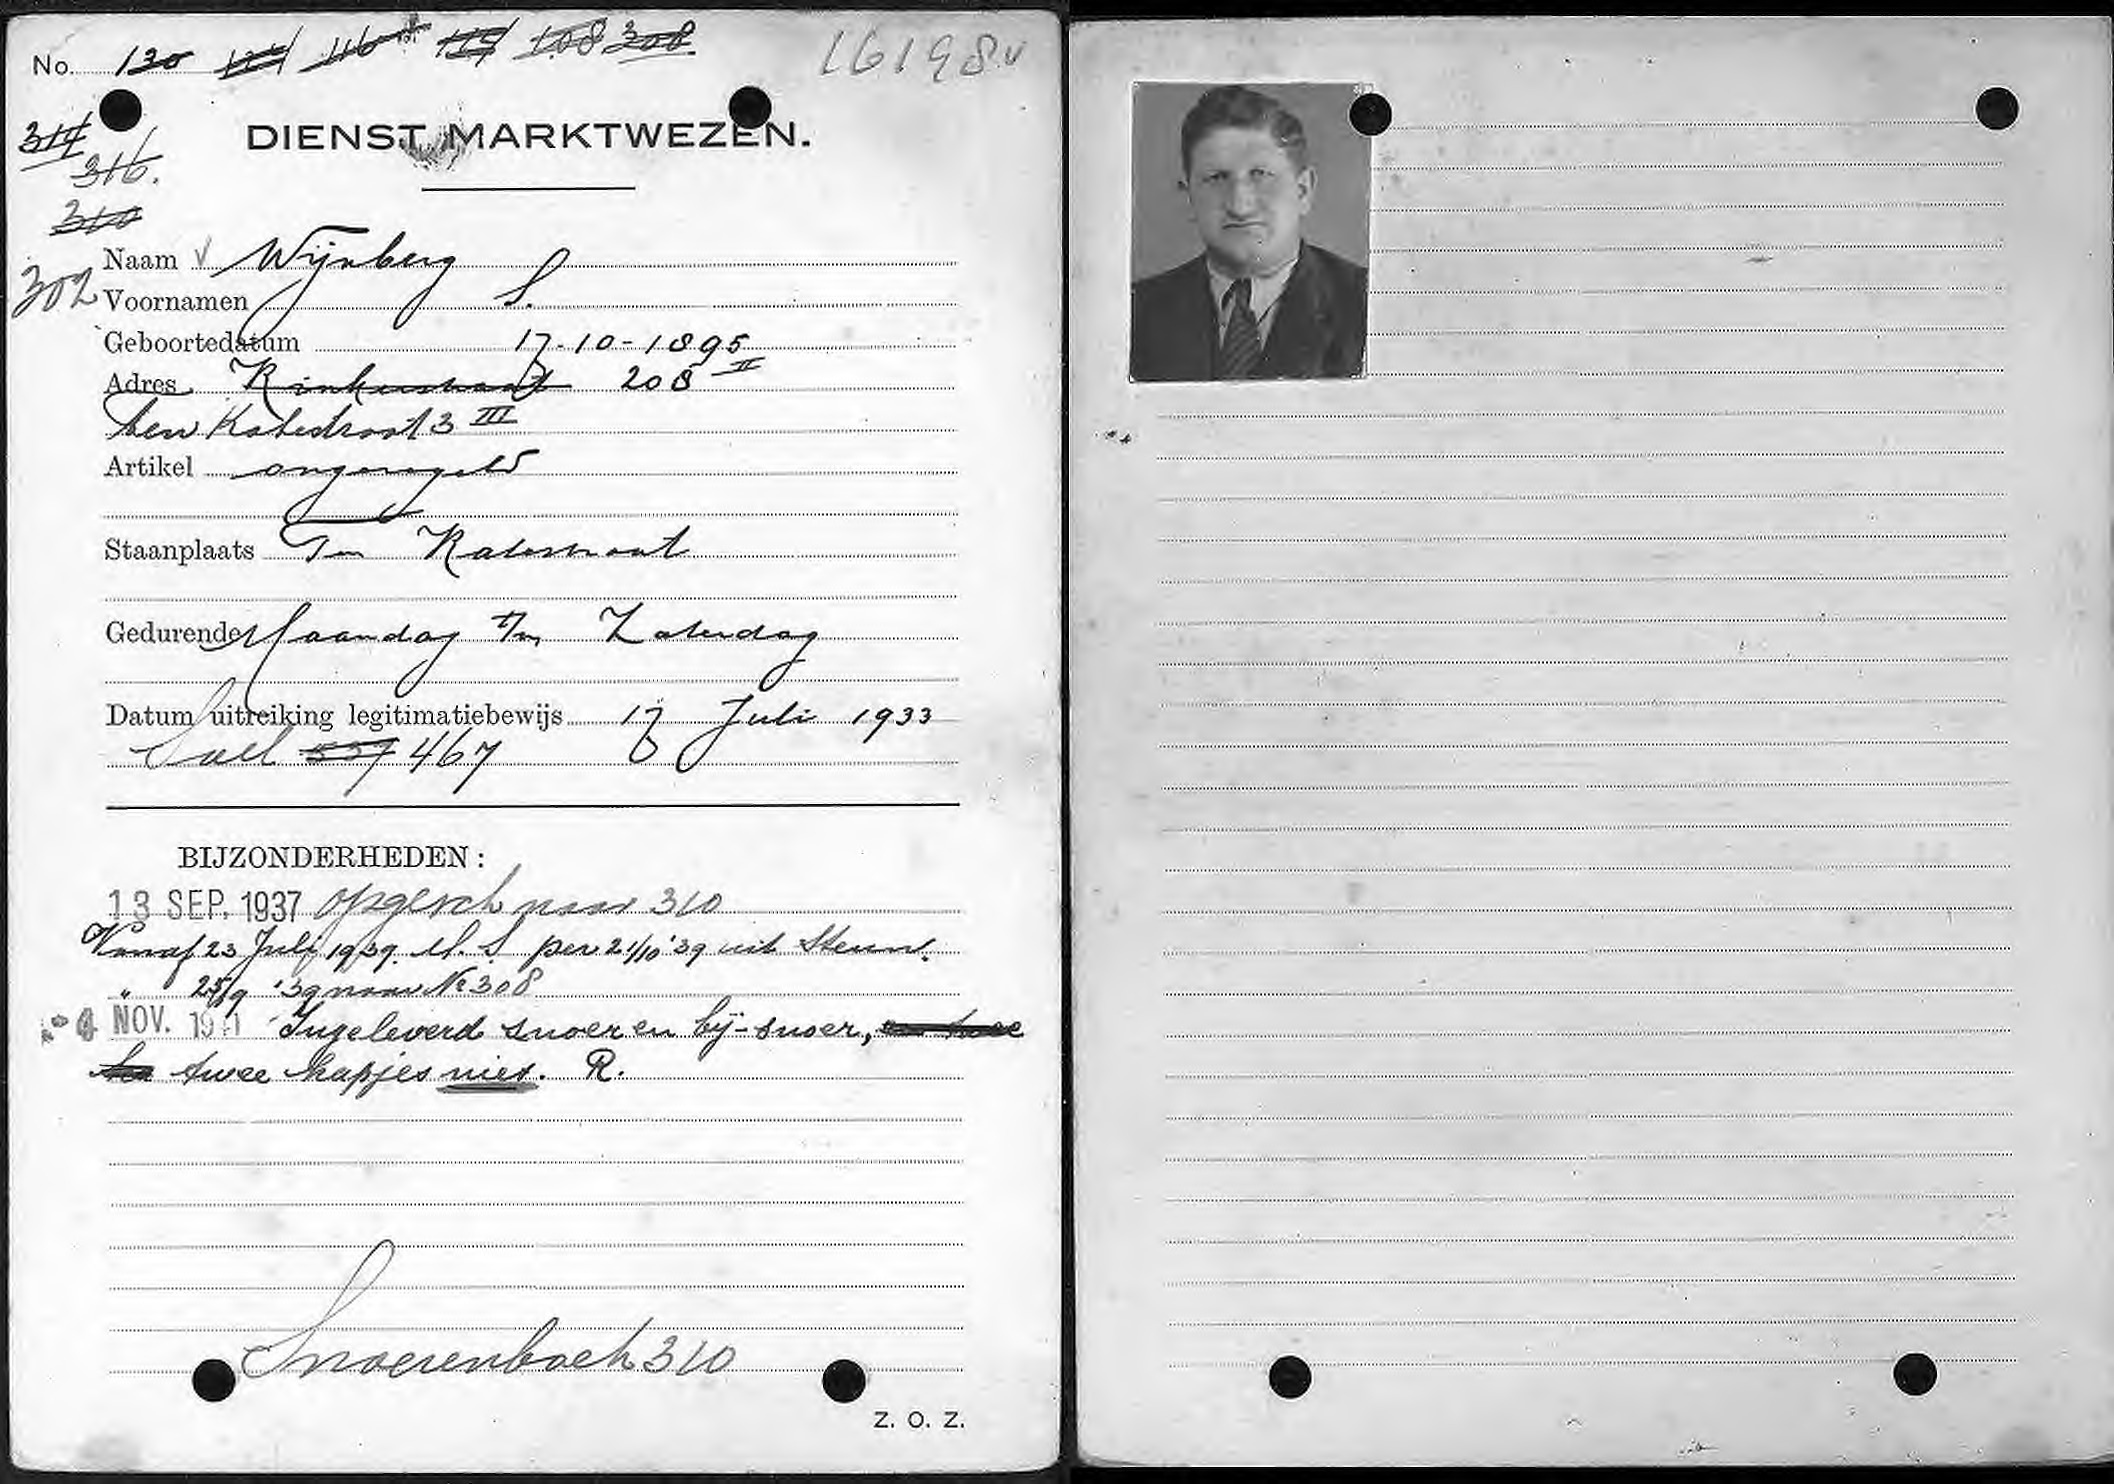 No. 130 121 116 115 108 308 16198 v
DIENST MARKTWEZEN.
314
316.
310
Naam v Wijnberg
302
Voornamen S.
Geboortedatum 17-10-1895
Adres Kinkerstraat 208 II
ten Katestraat 3 III
Artikel ongeregeld
Staanplaats Ten Katestraat
Gedurende Maandag t/m Zaterdag
Datum uitreiking legitimatiebewijs 17 Juli 1933
557 467
BIJZONDERHEDEN:
13 SEP. 1937 opgesch naar 310
Vanaf 23 Juli 1939. M.S. per 21/10 '39 uit Steun.
" 25/9 '39 naar No 308
4 NOV. 1941 Ingeleverd snoer en bij-snoer, en twee
twee kapjes niet. R.
Snoerenboek 310
Z. O. Z.